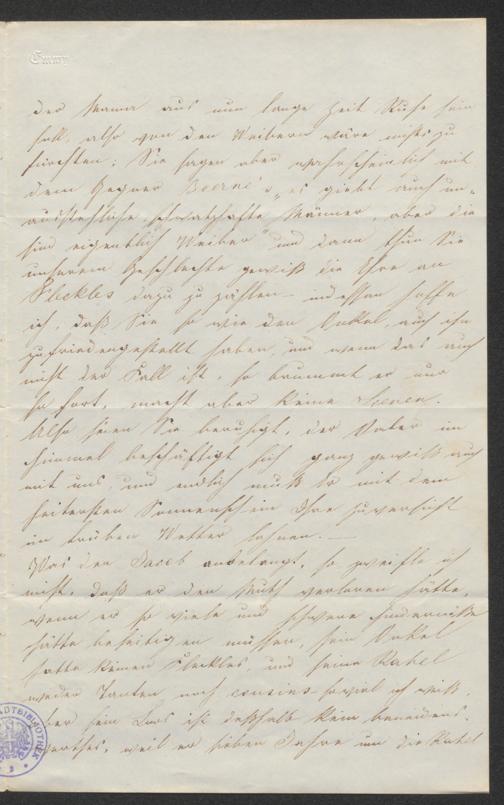 Emmy
der Mama aus nun lange Zeit Ruhe sein
soll, also von den Weibern wäre nichts zu
fürchten; Sie sagen aber wahrscheinlich mit
dem Gegner Boerne's „es giebt auch un-
ausstehliche, schwatzhafte Männer, aber die
sind eigentlich Weiber" und dann thun Sie
unserem Geschlechte gewiß die Ehre an
Fleckles dazu zu zählen – indessen hoffe
ich, daß Sie so wie den Onkel, auch ihn
zufriedengestellt haben, und wenn das auch
nicht der Fall ist, so brummt er nur
so fort, macht aber keine Scenen.
Also seien Sie beruhigt, der Vater im
Himmel beschäftigt sich ganz gewiß auch
mit uns, und endlich muß Er mit dem
heitersten Sonnenschein Ihre Zuversicht
im trüben Wetter lohnen. —
Was den Jacob anbelangt, so zweifle ich
nicht, daß er den Muth verloren hätte,
wenn er so viele und schwere Hindernisse
hätte beseitigen müssen, sein Onkel
hatte keinen Fleckles, und seine Rahel
weder Tanten noch cousins soviel ich weiß.
aber sein Loos ist deßhalb kein beneidens-
werthes, weil er sieben Jahre um die Rahel
STADTBIBLIOTHEK